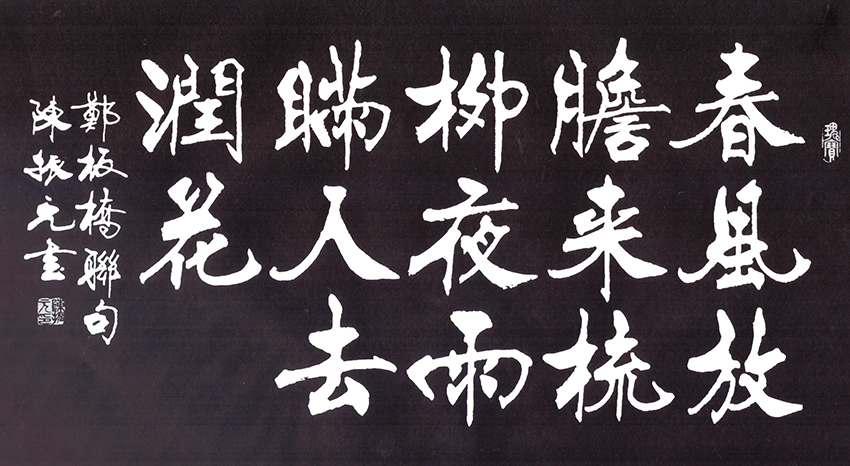 瑰寶
春風放
膽来梳
柳夜雨
瞞人去
潤花
鄭板橋聯句
陳振元書